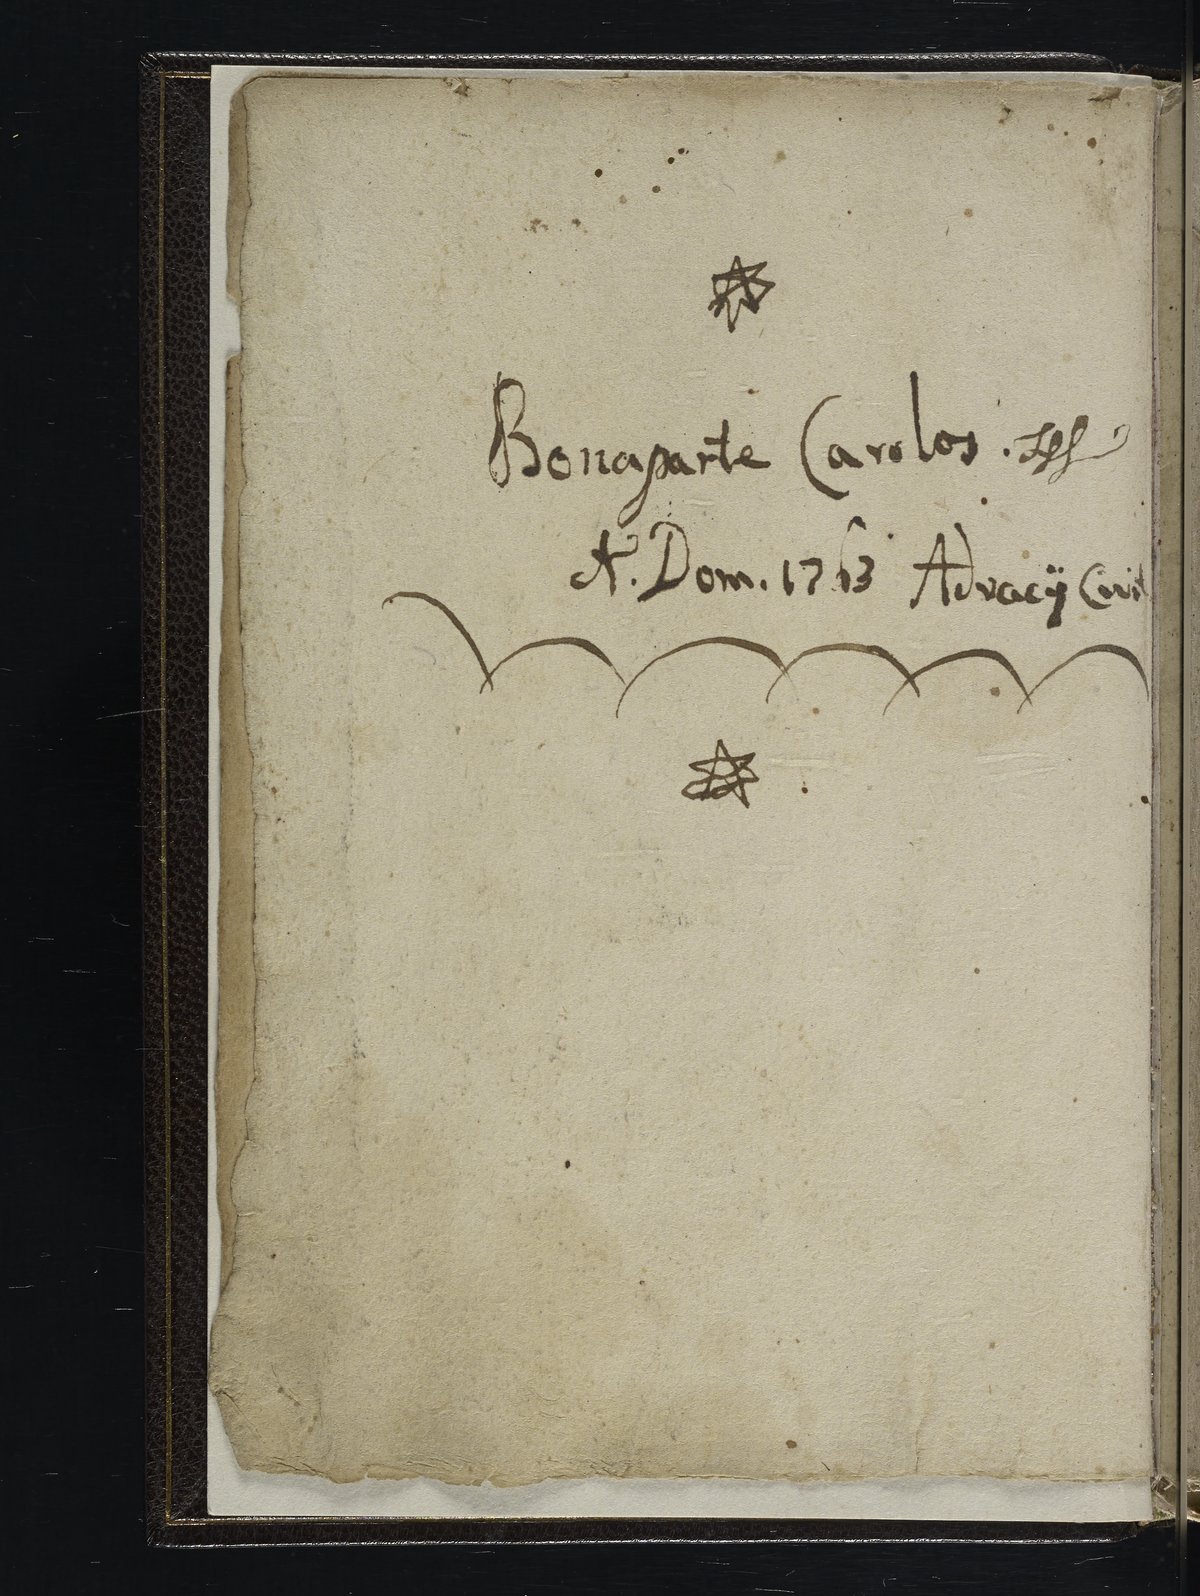 Bonaparte Carolos.
A. Dom. 1763 Adiacij